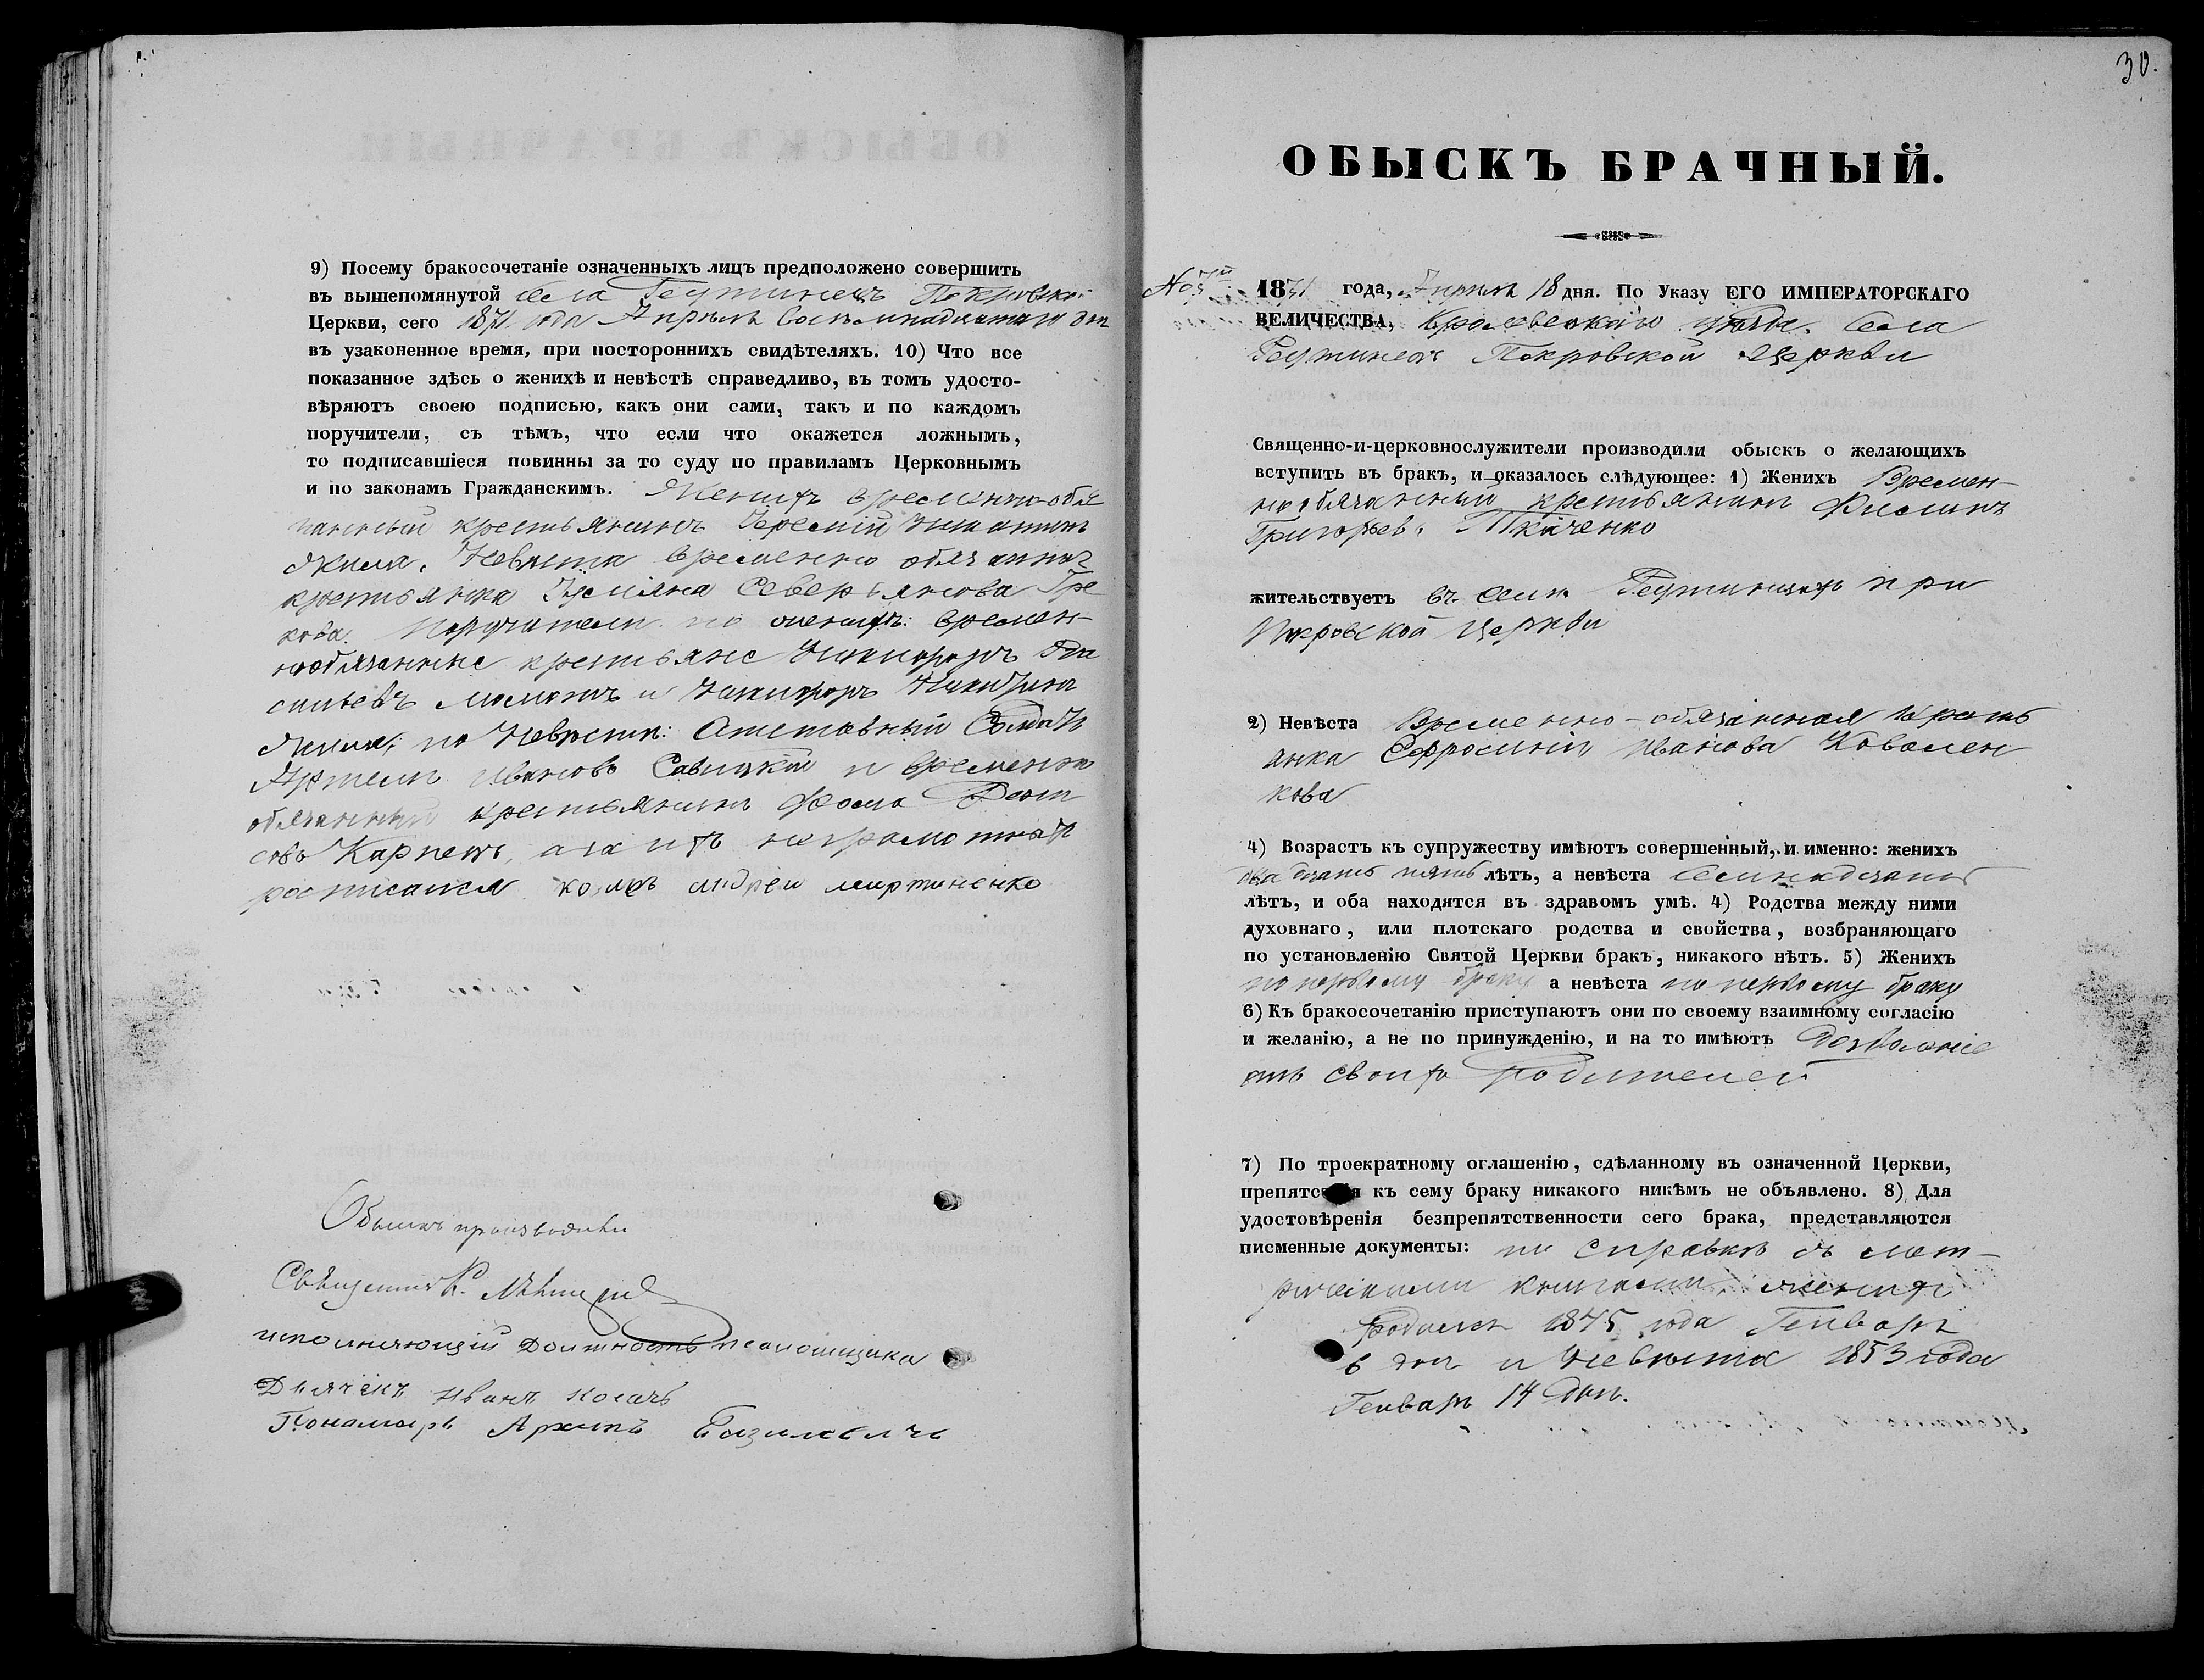 9) Посему бракосочетаніе означенныхъ лицъ предположено совершить
въ вышепомянутой села Реутинецъ Покровской
Церкви, сего 1871 года Апрѣля Восемнадцатаго дня
въ узаконенное время, при постороннихъ свидѣтеляхъ. 10) Что все
показанное здѣсь о женихѣ и невѣстѣ справедливо, въ томъ удосто-
вѣряютъ своею подписью, какъ они сами, такъ и по каждомъ
поручители, съ тѣмъ, что если что окажется ложнымъ,
то подписавшіеся повинны за то суду по правиламъ Церковнымъ
и по законамъ Гражданскимъ. Женихъ временно-обя
занный крестьянинъ Іеремій
Невѣста временно обязанная
крестьянка Северьянова Гре
кова. Поручители по женихѣ: времен-
нообязанные крестьяне Никифоръ Ва
сильевъ и Никифоръ
по Невѣстѣ: Отставный Солдатъ
Ивановъ Савицкій и временно
обязанный крестьянинъ Фома
Карпецъ, а за ихъ неграмотныхъ
росписался андрей мартиненко
Обыскъ производили
Священникъ
исполняющій должность псаломщика
Дьячекъ Иванъ Носачь
Пономарь Архипъ Базилевичь
30.
ОБЫСКЪ БРАЧНЫЙ.
1871 года, Апрѣля 18 дня. По Указу ЕГО ИМПЕРАТОРСКАГО
ВЕЛИЧЕСТВА, Кролевецкаго уѣзда. Села
Реутинецъ Покровской Церкви
Священно-и-церковнослужители производили обыскъ о желающихъ
вступить въ бракъ, и оказалось слѣдующее: 1) Женихъ Времен-
нообязанный крестьянинъ
Григорьевъ Ткаченко
жительствуетъ въ селѣ Реутинцахъ при
Покровской Церкви
2) Невѣста Временно-обязанная кресть
янка Ефросинія Иванова Ковален
кова
4) Возрастъ къ супружеству имѣютъ совершенный, и именно: женихъ
двадцать пять лѣтъ, а невѣста семнадцать
лѣтъ, и оба находятся въ здравомъ умѣ. 4) Родства между ними
духовнаго, или плотскаго родства и свойства, возбраняющаго
по установленію Святой Церкви бракъ, никакого нѣтъ. 5) Женихъ
по первому браку а невѣста по первому браку
6) Къ бракосочетанію приступаютъ они по своему взаимному согласію
и желанію, а не по принужденію, и на то имѣютъ дозволеніе
отъ своихъ родителей
7) По троекратному оглашенію, сдѣланному въ означенной Церкви,
препятствія къ сему браку никакого никѣмъ не объявлено. 8) Для
удостовѣренія безпрепятственности сего брака, представляются
писменные документы: по справкѣ съ мет-
рическими книгами, женихъ
родился 1845 года Генваря
6 дня и Невѣста 1853 года
Генваря 14 дня.